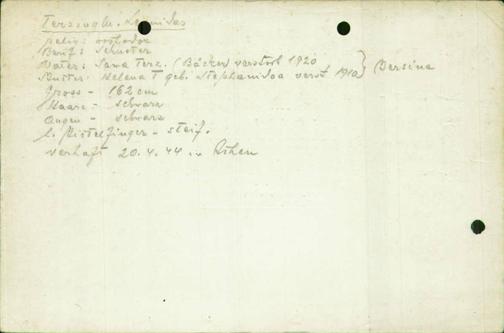 Terzoglu. Leonidas
relig: orthodox
Beruf: Schuster
Vater: Sawa Terz. (Bäcker) verstorb 1920
Mutter: Helena T geb. Stephanidoa verst 1910 } Dersina
Gross - 162 cm
Haare - schwarz
Augen - schwarz
l. Mittelfinger - steif.
verhaft 20.4.44 in Athen